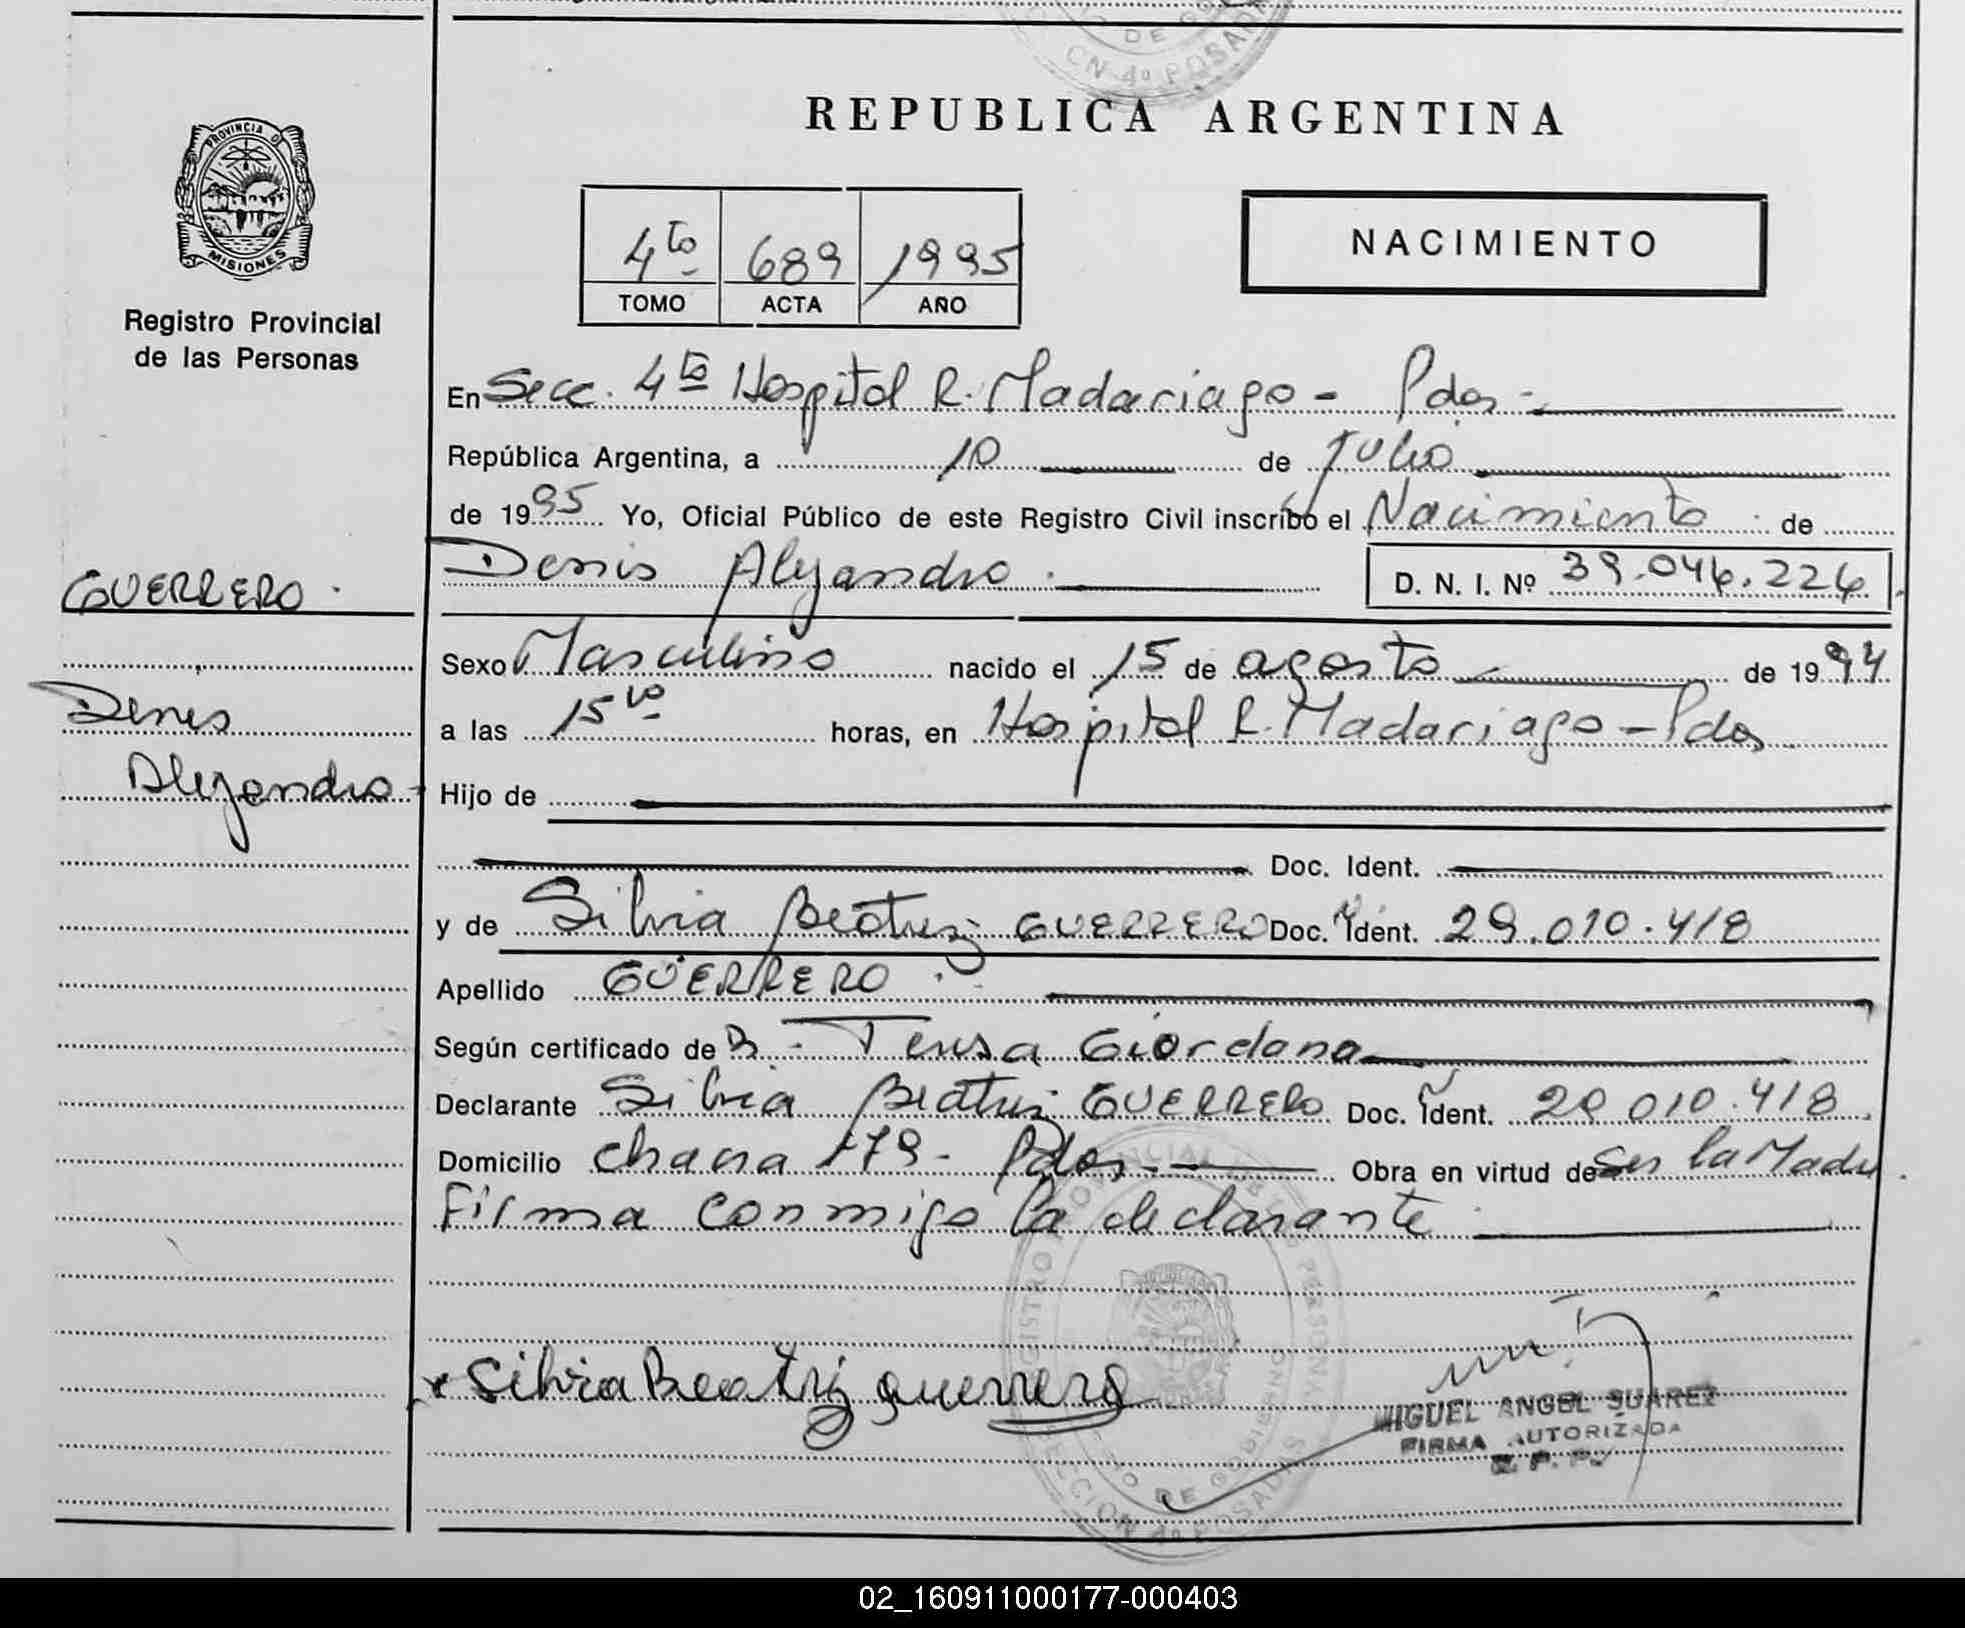 DE GO
CN 4º POSADA
REPUBLICA ARGENTINA
PROVINCIA D
MISIONES
Registro Provincial
de las Personas
4to 689 1995
TOMO ACTA AÑO
NACIMIENTO
En Secc. 4to Hospital R. Madariaga - Pdas -
República Argentina, a 10 de Julio
de 1995 Yo, Oficial Público de este Registro Civil inscribo el Nacimiento de
GUERRERO.
Denis Alejandro. D. N. I. Nº 39.046.224
Sexo Masculino nacido el 15 de agosto de 1994
Denis
a las 15 horas, en Hospital R. Madariaga - Pdas
Alejandro -
Hijo de
Doc. Ident.
y de Silvia Beatriz GUERRERO Doc. Ident. 29.010.418
Apellido GUERRERO.
Según certificado de Teresa Giordana
Declarante Silvia Beatriz GUERRERO Doc. Ident. 29 010.418
Domicilio chacra 179 - Pdas. - Obra en virtud de Ser la Madre
Firma conmigo la declarante.
Silvia Beatriz guerrero
MIGUEL ANGEL SUAREZ
FIRMA AUTORIZADA
DE GOBIERNO
SECCION 4º POSADAS
02_160911000177-000403